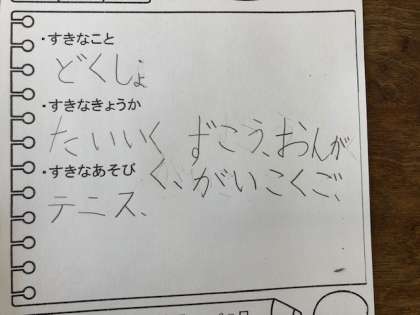 ・すきなこと
どくしょ
・すきなきょうか
たいいく ずこう、おんが
・すきなあそび く、がいこくご、
テニス、